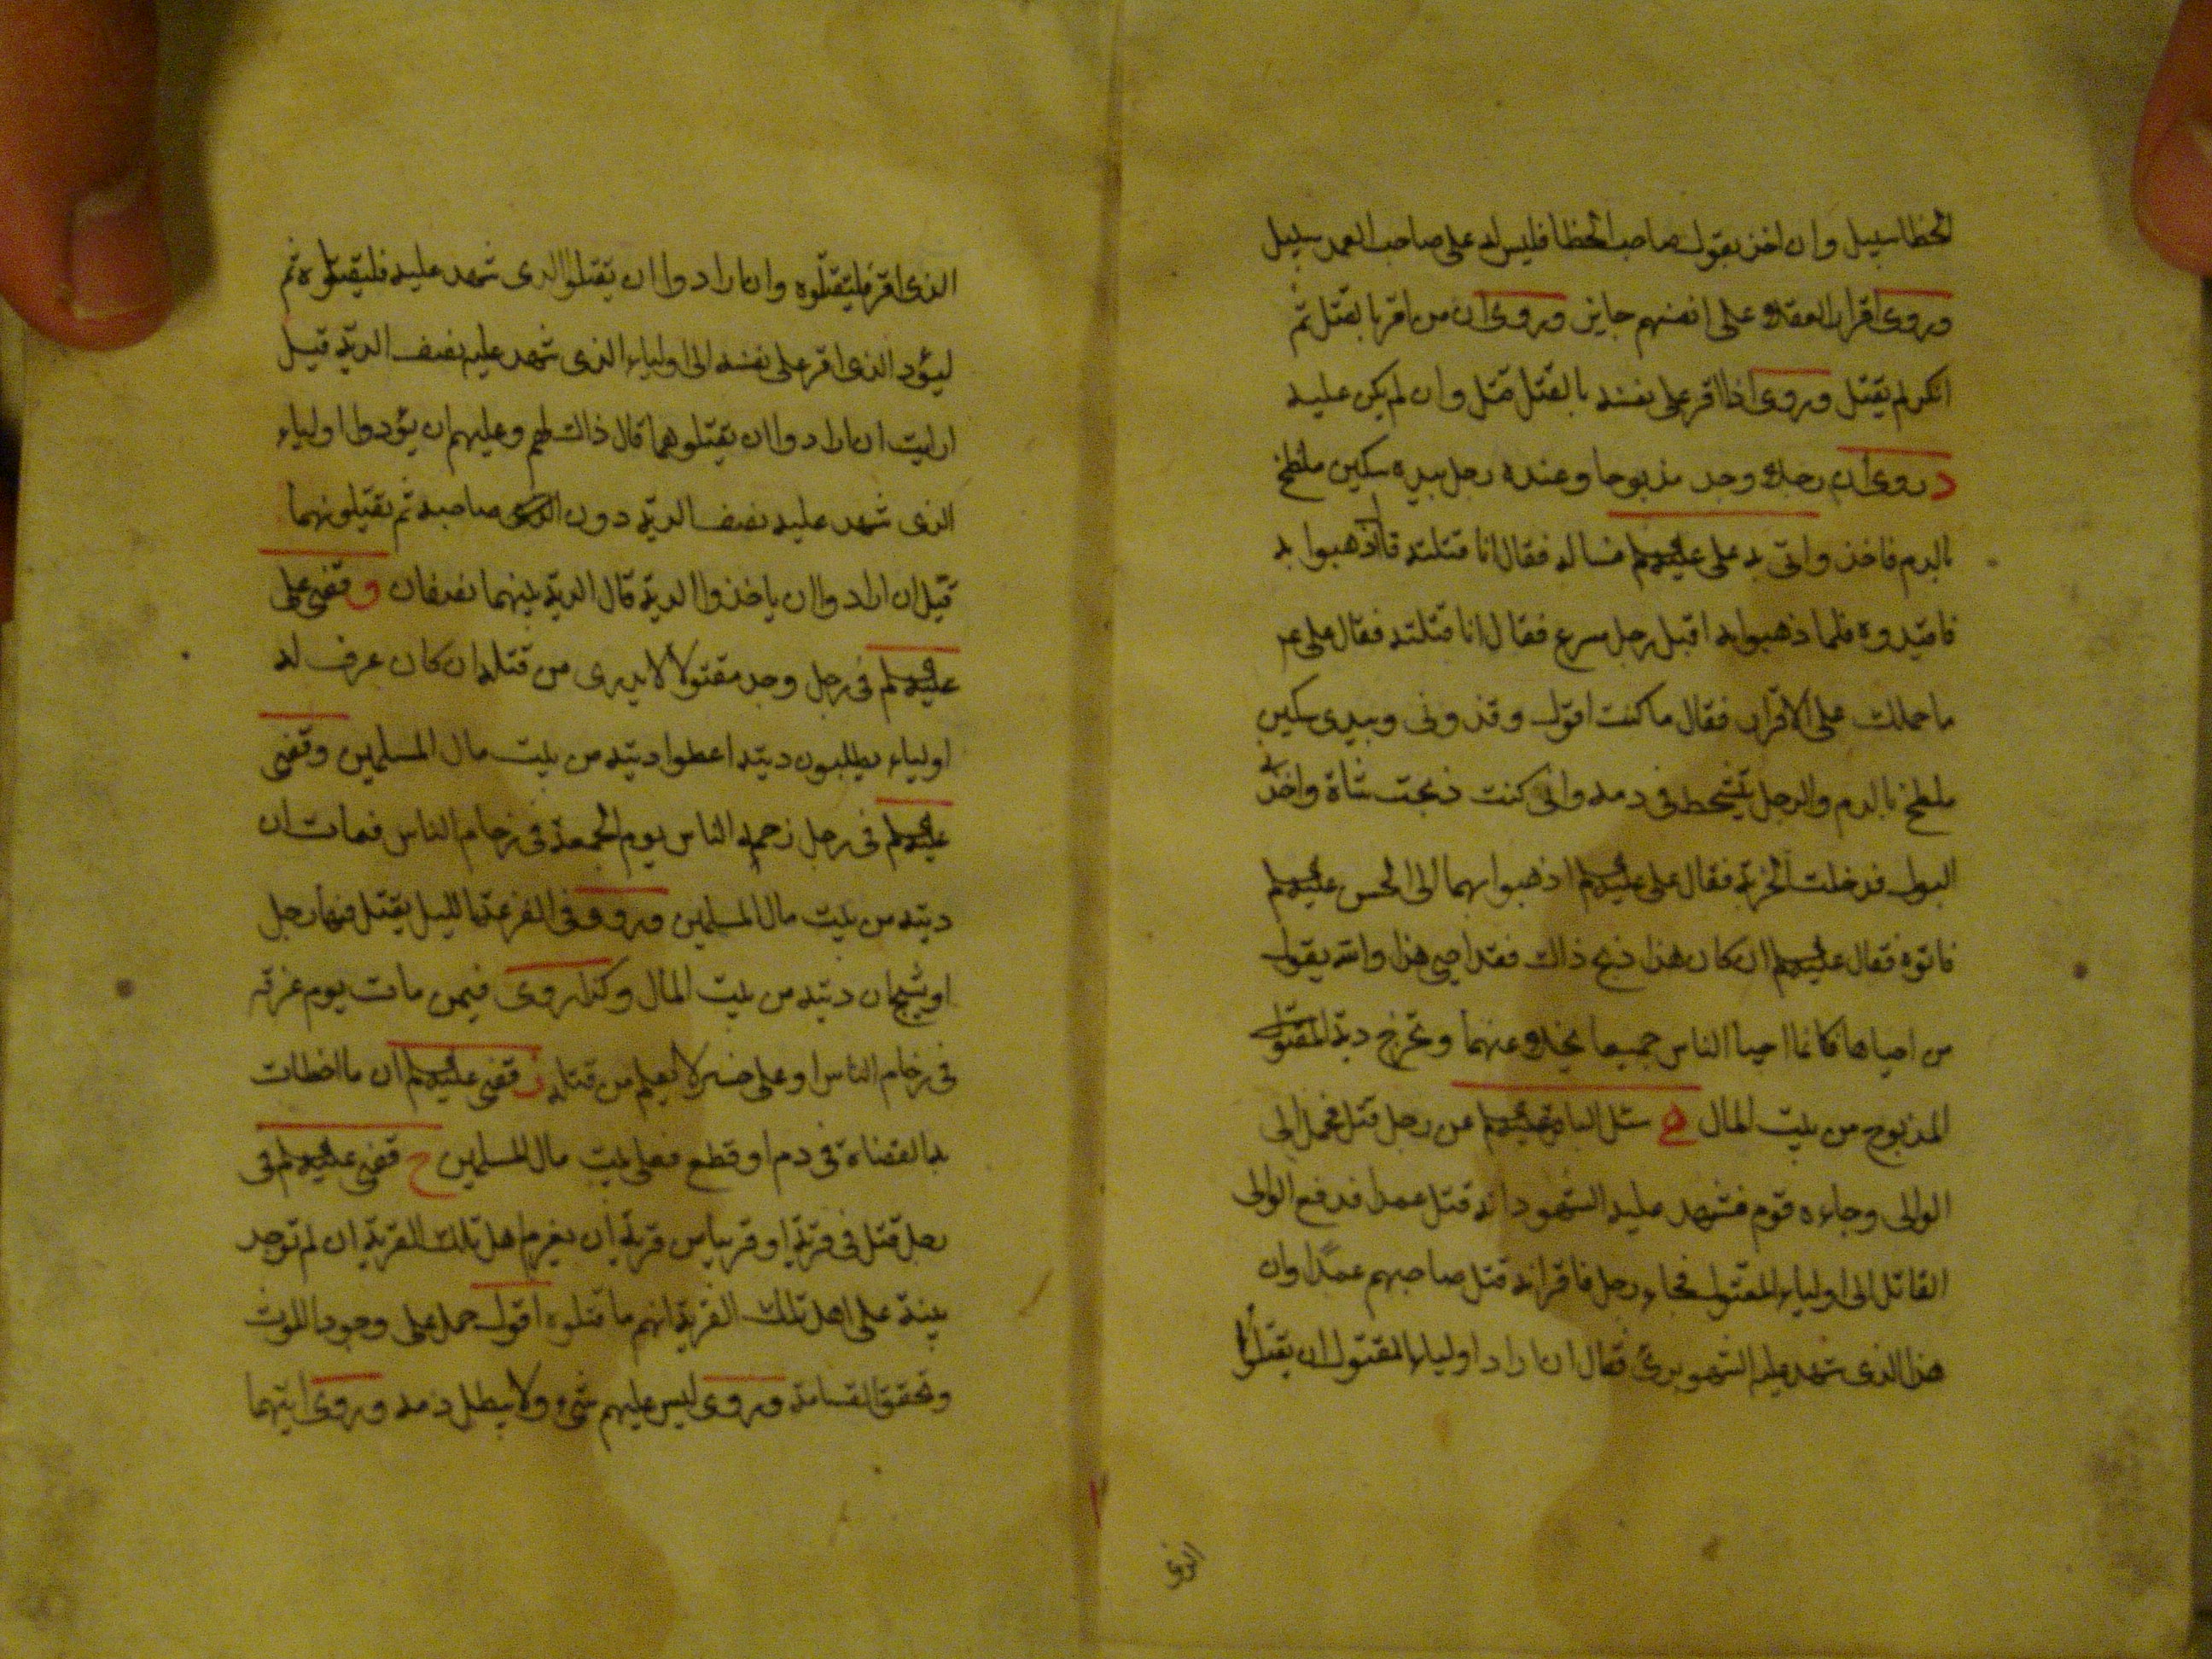 الخطا سبيل وان اخذ بقول صاحب الخطا فليس له على صاحب العمد سبيل
وروى اقرار العقلاء على انفسهم جايز وروى ان من اقر بالقتل ثم
انكر لم يقتل وروى اذا اقر على نفسه بالقتل قتل وان لم يكن عليه
د روى ان رجلا وجد مذبوحا وعنده رجل بيده سكين ملطخ
بالدم فاخذ واتى به على عليه السلم فساله فقال انا قتلته قال اذهبوا به
فاقيدوه فلما ذهبوا به اقبل رجل مسرع فقال انا قتلته فقال على عم
ما حملك على الاقرار فقال ما كنت اقول وقد رونى وبيدى سكين
ملطخ بالدم والرجل يتشحط فى دمه وانى كنت ذبحت شاة واخذنى
البول فدخلت الخربة فقال على عليه السلم اذهبوا بهما الى الحسن عليه السلم
فاتوه فقال عليه السلم ان كان هذا ذبح ذاك فقد احيى هذا والله يقول
من احياها فكانما احيا الناس جميعا يخلا عنهما وتخرج دية المقتول
المذبوح من بيت المال ه سئل الباقر عليه السلم عن رجل قتل فحمل الى
الوالى وجاءه قوم فشهد عليه الشهود انه قتل عمدا فدفع الوالى
القاتل الى اولياء المقتول فجاء رجل فاقر انه قتل صاحبهم عمدا وان
هذا الذى شهد عليه الشهو برئ فقال ان اراد اولياء المقتول ان يقتلوا
الذى
الذى اقر فليقتلوه وان ارادوا ان يقتلوا الذى شهد عليه فليقتلوه ثم
ليؤد الذى اقر على نفسه الى اولياء الذى شهد عليه نصف الدية قيل
ارايت ان ارادوا ان يقتلوهما قال ذاك لهم وعليهم ان يؤدوا اولياء
الذى شهد عليه نصف الدية دون صاحبه ثم يقتلونهما
قيل ان ارادوا ان ياخذوا الدية قال الدية بينهما نصفان و قضى على
عليه السلم فى رجل وجد مقتولا لا يدرى من قتله ان كان عرف له
اولياء يطلبون ديته اعطوا ديته من بيت مال المسلمين وقضى
عليه السلم فى رجل زحمه الناس يوم الجمعة فى زحام الناس فمات ان
ديته من بيت مال المسلمين وروى فى الفزعة بالليل يقتل فيها رجل
او يشج ان ديته من بيت المال وكذا روى فيمن مات يوم عرفة
فى زحام الناس او على جسر لا يعلم من قتله ز قضى عليه السلم ان ما اخطات
به القضاة فى دم او قطع فعلى بيت مال المسلمين ح قضى عليه السلم فى
رجل قتل فى قرية او قريبا من قرية ان يغرم اهل تلك القرية ان لم توجد
بينة على اهل تلك القرية انهم ما قتلوه اقول حمل على وجود اللوث
وتحقق القسامة وروى ليس عليهم شئ ولا يبطل دمه وروى ايتهما